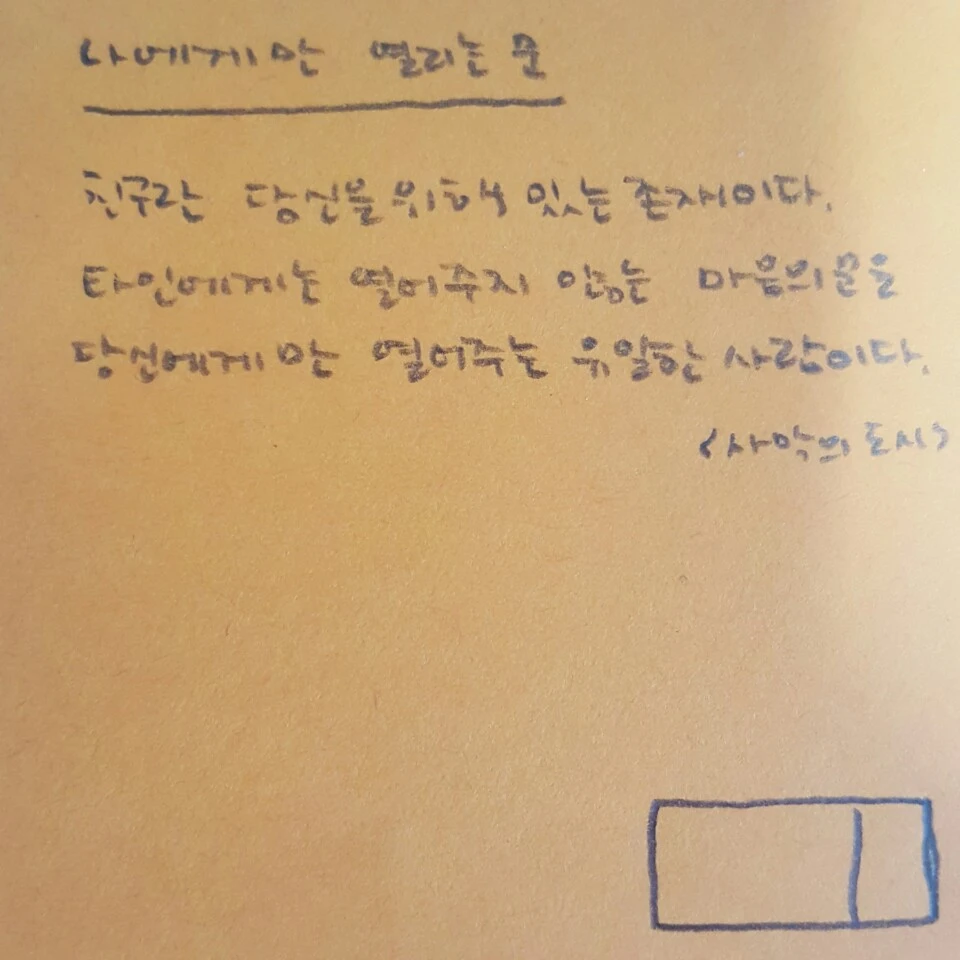 나에게만 열리는 문
친구란 당신을 위해 있는 존재이다.
타인에게는 열어주지 않는 마음의문을
당신에게만 열어주는 유일한 사람이다.
<사막의 도시>